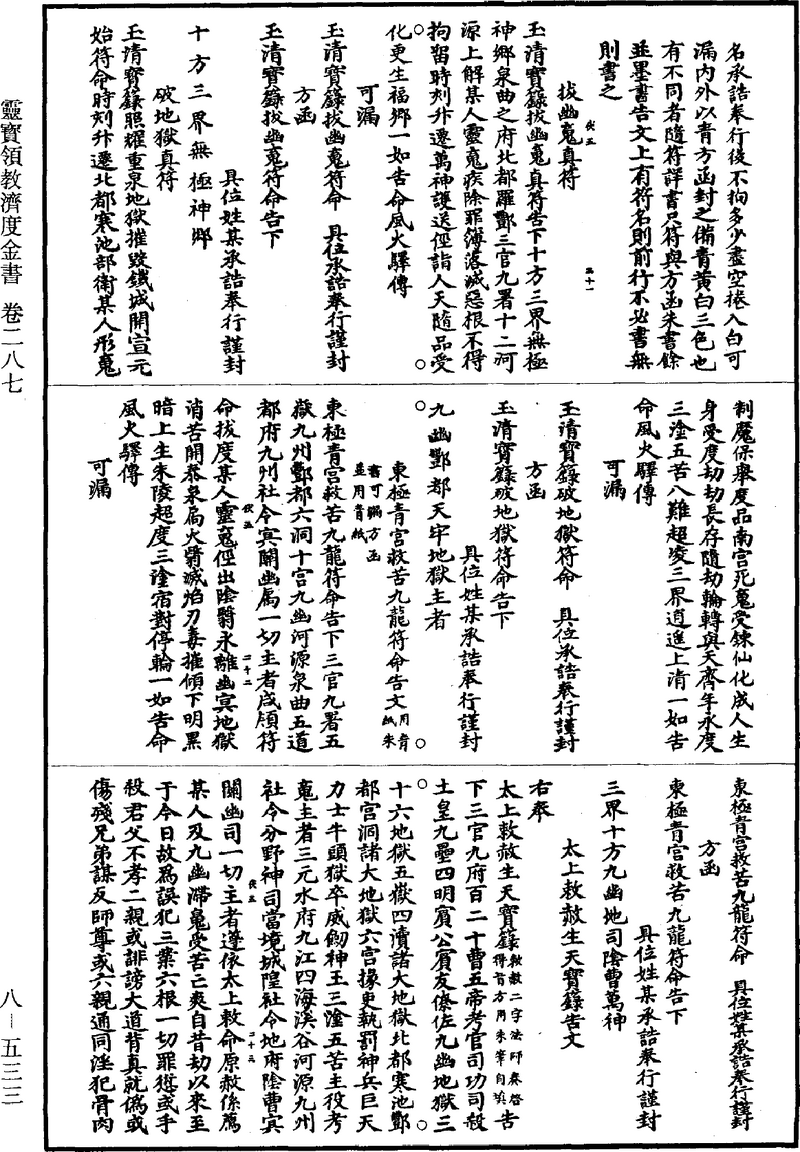 名承誥奉行後不拘多少盡空捲入白可
漏內外以青方函封之備青黃白三色也
有不同者隨符詳書只符與方函朱書餘
並墨書告文上有符名則前行不必書無
則書之
拔幽䰟真符
玉清寶籙拔幽䰟真符告下十方三界無極
神鄉泉曲之府北都羅酆三官九署十二河
源上解某人靈䰟疾除罪簿落滅惡根不得
拘留時刻升遷萬神護送徑詣人天隨品受
化更生福鄉一如告命風火驛傳
可漏
玉清寶籙拔幽䰟符命 具位承誥奉行謹封
方函
玉清寶籙拔幽䰟符命告下
具位姓某承誥奉行謹封
十方三界無極神鄉
破地獄真符
玉清寶籙照耀重泉地獄摧毀鐵城開宣元
始符命時刻升遷北都寒池部衛某人形䰟
制魔保舉度品南宮死䰟受鍊仙化成人生
身受度劫劫長存隨劫輪轉與天齊年永度
三塗五苦八難超凌三界逍遙上清一如告
命風火驛傳
可漏
玉清寶籙破地獄符命 具位承誥奉行謹封
方函
玉清寶籙破地獄符命告下
具位姓某承誥奉行謹封
九幽酆都天牢地獄主者
東極青宮救苦九龍符命告文用青紙朱
書可漏方函並用青紙
東極青宮救苦九龍符命告下三官九署五
嶽九州酆都六洞十宮九幽河源泉曲五道
都府九州社令冥關幽屬一切主者咸頒符
命拔度某人靈䰟徑出陰翳永離幽冥地獄
消苦開恭泉扃火翳滅焰刃毒摧傾下明黑
暗上生朱陵超度三塗宿對停輪一如告命
風火驛傳
可漏
東極青宮救苦九龍符命 具位姓某承誥奉行謹封
方函
東極青宮救苦九龍符命告下
具位姓某承誥奉行謹封
三界十方九幽地司陰曹萬神
太上敕赦生天寶籙告文
右奉
太上敕赦生天寶籙敕赦二字法師奏啓得旨方用朱筆自填告
下三官九府百二十曹五帝考官司功司殺
土皇九壘四明賓公賓友僚佐九幽地獄三
十六地獄五嶽四瀆諸大地獄北都寒池酆
都宮洞諸大地獄六宮掾吏執罰神兵巨天
力士牛頭獄卒威劒神王三塗五苦主役考
䰟主者三元水府九江四海溪谷河源九州
社令分野神司當境城隍社令地府陰曹冥
關幽司一切主者遵依太上敕命原赦係薦
某人及九幽滯䰟受苦亡爽自昔劫以來至
于今日故為誤犯三業六根一切罪愆或手
殺君父不孝二親或誹謗大道背真就偽或
傷殘兄弟謀反師尊或六親通同淫犯骨肉
靈寶領教濟度金書 卷二八七
八—五三三